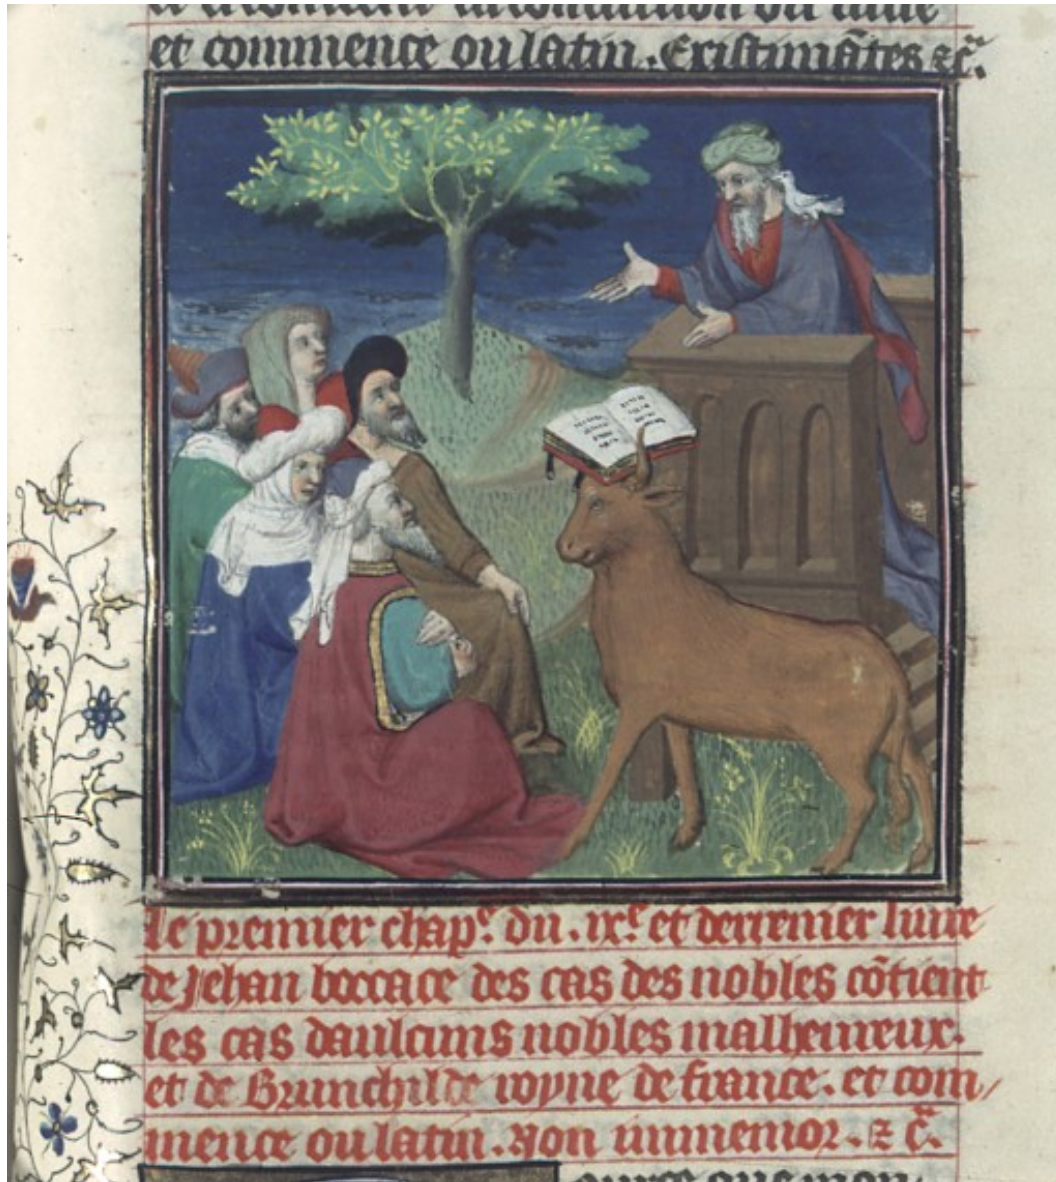 et commence ou latin. Existimãtes &c̃.
le premier chapᵉ. du .ixᵉ. et derrenier liure
de Jehan boccace des cas des nobles cõtient
les cas daulcuns nobles malheureux.
et de Brunchilde royne de france. et com/
mence ou latin. Non immemor. & c̃.